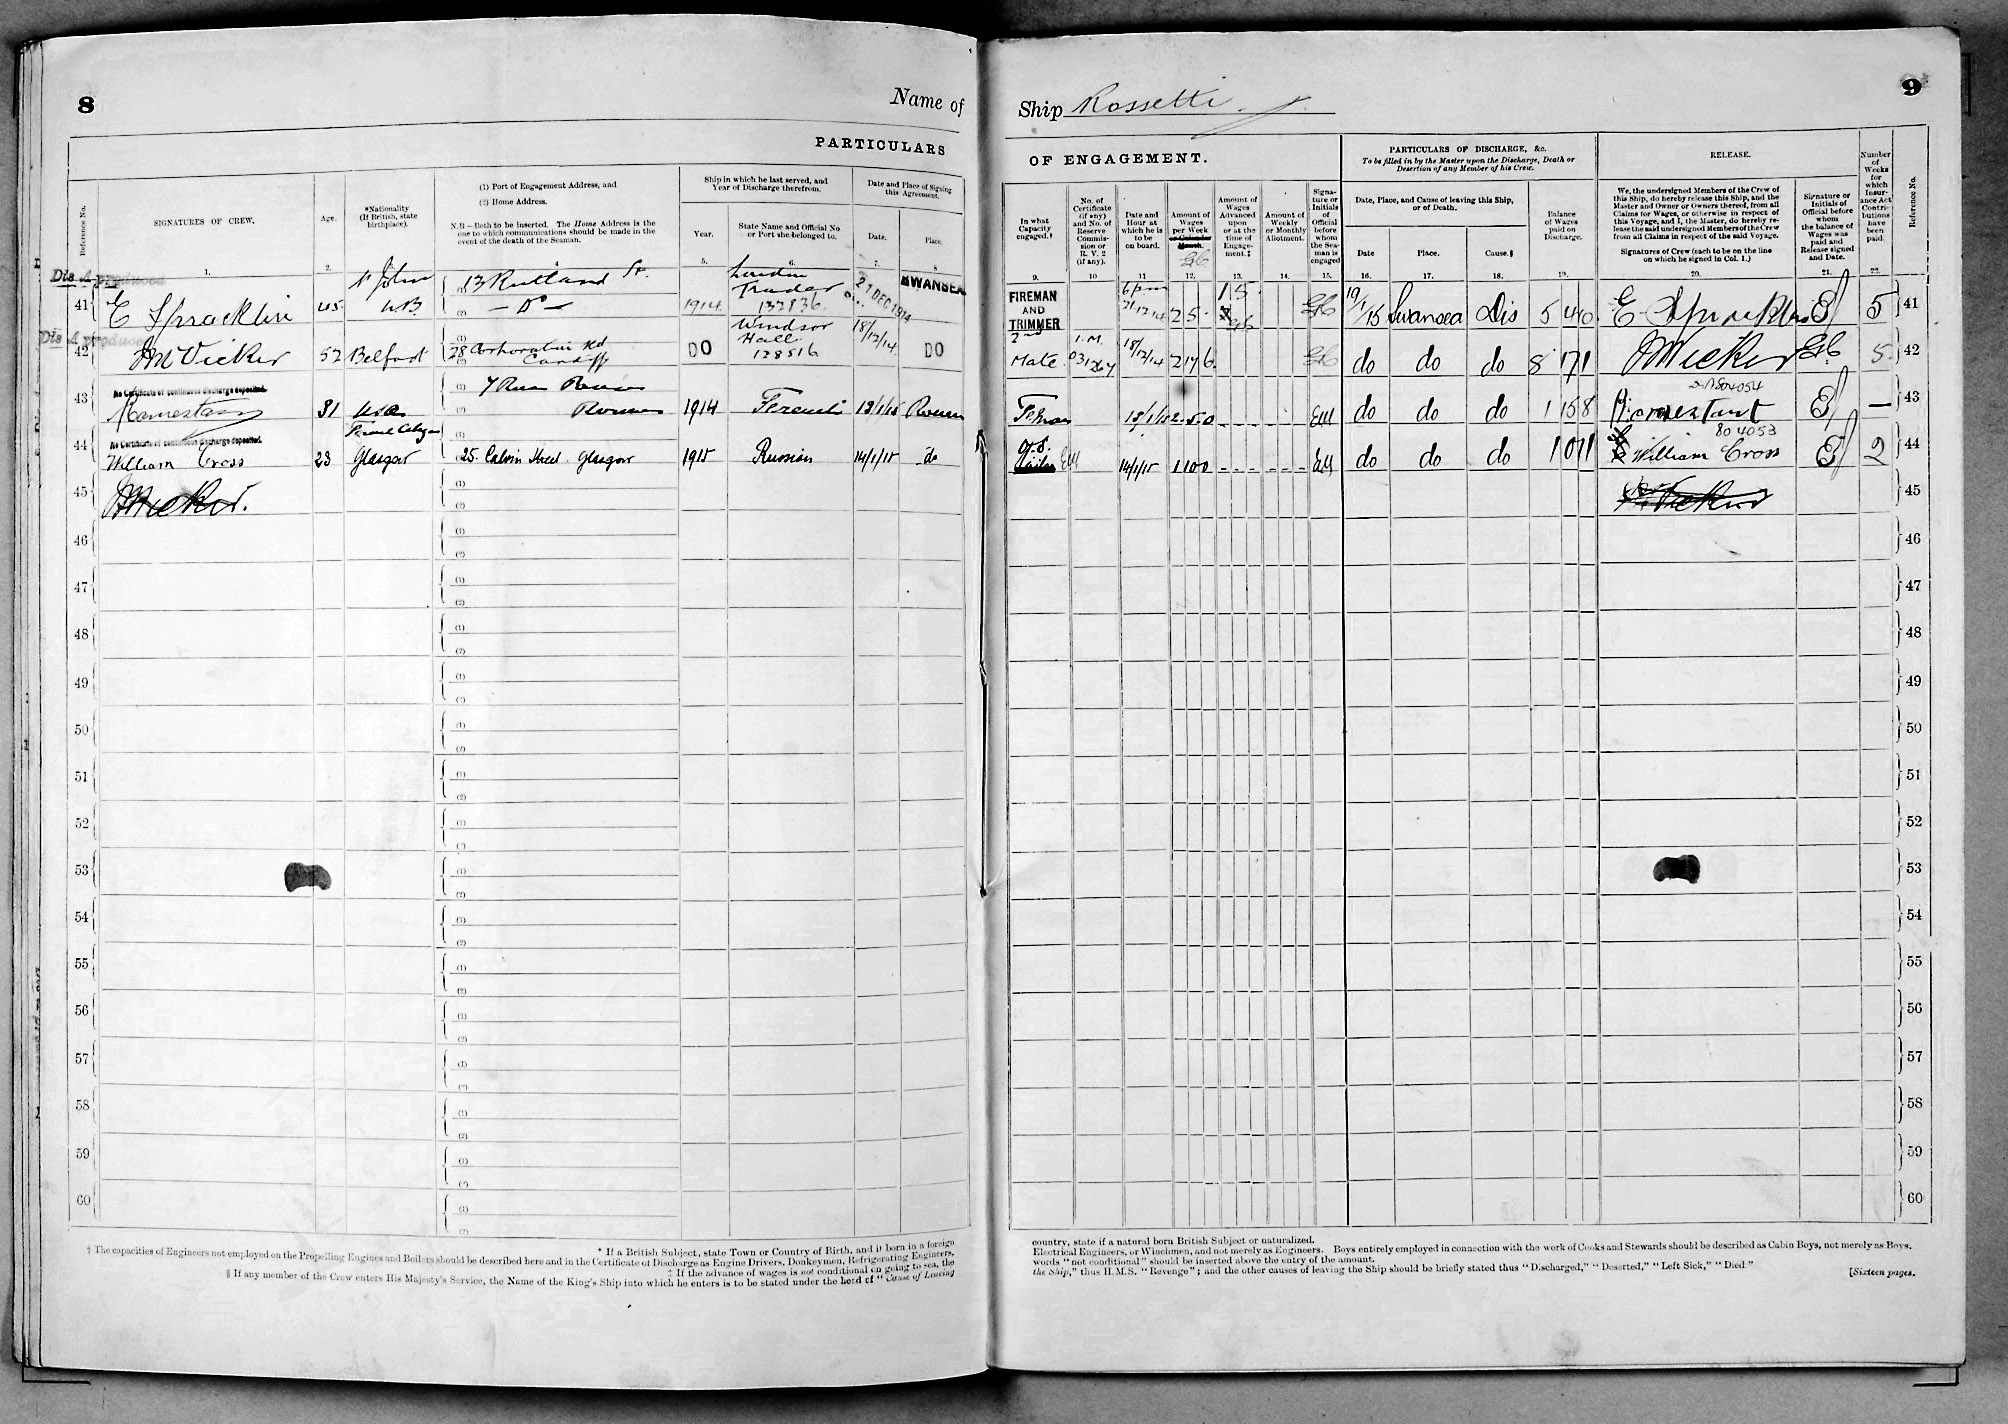 8
Name of
PARTICULARS
Reference No.
SIGNATURES OF CREW.
Age.
*Nationality
(If British, state
birthplace).
(1) Port of Engagement Address, and
(2) Home Address.
N.B—Both to be inserted. The Home Address is the
one to which communications should be made in the
event of the death of the Seaman.
Ship in which he last served, and
Year of Discharge therefrom.
Year.
State Name and Official No
or Port she belonged to.
Date and Place of Signing
this Agreement.
Date.
Place.
1. 2. 5. 6. 7. 8
Dis A produced
41 E Spracklin 45 St John NB 13 Rutland St. — Do — 1914 London Trader 132736 21 DEC 1914 SWANSEA
Dis A produced
42 McVicker 52 Belfast 28 Corporation Rd Cardiff DO Windsor Hall 128516 18/12/14 DO
No Certificate of continuous discharge deposited.
43 31 USA 1914 13/1/15 Rouen
No Certificate of continuous discharge deposited.
44 William Cross 23 Glasgow 25 Calvin Street Glasgow 1915 Russian 14/1/15 do
45 McVicker.
46
47
48
49
50
51
52
53
54
55
56
57
58
59
60
* If a British Subject, state Town or Country of Birth, and if born in a foreign
† The capacities of Engineers not employed on the Propelling Engines and Boilers should be described here and in the Certificate of Discharge as Engine Drivers, Donkeymen, Refrigerating Engineers,
‡ If the advance of wages is not conditional on going to sea, the
§ If any member of the Crew enters His Majesty's Service, the Name of the King's Ship into which he enters is to be stated under the head of "Cause of Leaving
9
Ship Rossetti
OF ENGAGEMENT.
PARTICULARS OF DISCHARGE, &c.
To be filled in by the Master upon the Discharge, Death or
Desertion of any Member of his Crew.
RELEASE.
Number
of
Weeks
for
which
Insur-
ance Act
Contri-
butions
have
been
paid.
Reference No.
In what
Capacity
engaged.†
No. of
Certificate
(if any)
and No. of
Reserve
Commis-
sion or
R. V. 2
(if any).
Date and
Hour at
which he is
to be
on board.
Amount of
Wages
per Week
or Calendar
Month.
Amount of
Wages
Advanced
upon
or at the
time of
Engage-
ment.‡
Amount of
Weekly
or Monthly
Allotment.
Signa-
ture or
Initials
of
Official
before
whom
the Sea-
man is
engaged
Date, Place, and Cause of leaving this Ship,
or of Death.
Date
Place.
Cause.§
Balance
of Wages
paid on
Discharge.
We, the undersigned Members of the Crew of
this Ship, do hereby release this Ship, and the
Master and Owner or Owners thereof, from all
Claims for Wages, or otherwise in respect of
this Voyage, and I, the Master, do hereby re-
lease the said undersigned Members of the Crew
from all Claims in respect of the said Voyage.
Signatures of Crew (each to be on the line
on which he signed in Col. 1.)
Signature or
Initials of
Official before
whom
the balance of
Wages was
paid and
Release signed
and Date.
9. 10 11 12. 13. 14. 15. 16. 17. 18. 19. 20. 21. 22.
FIREMAN AND TRIMMER 6 pm 21 12 14 25 15 19/1/15 Swansea Dis 5 4 0 E Spracklin 5 41
2 Mate 1.M. 031264 18/12/14 2 17 6 do do do 8 17 1 McVicker 5 42
13/1/15 2.5.0 do do do 1 15 8 804054 — 43
O.S. 14/1/15 1 10 0 do do do 1 0 11 804053 William Cross 2 44
45
46
47
48
49
50
51
52
53
54
55
56
57
58
59
60
country, state if a natural born British Subject or naturalized.
Electrical Engineers, or Winchmen, and not merely as Engineers. Boys entirely employed in connection with the work of Cooks and Stewards should be described as Cabin Boys, not merely as Boys.
words "not conditional" should be inserted above the entry of the amount.
the Ship," thus H.M.S. "Revenge"; and the other causes of leaving the Ship should be briefly stated thus "Discharged," "Deserted," "Left Sick," "Died."
[Sixteen pages.